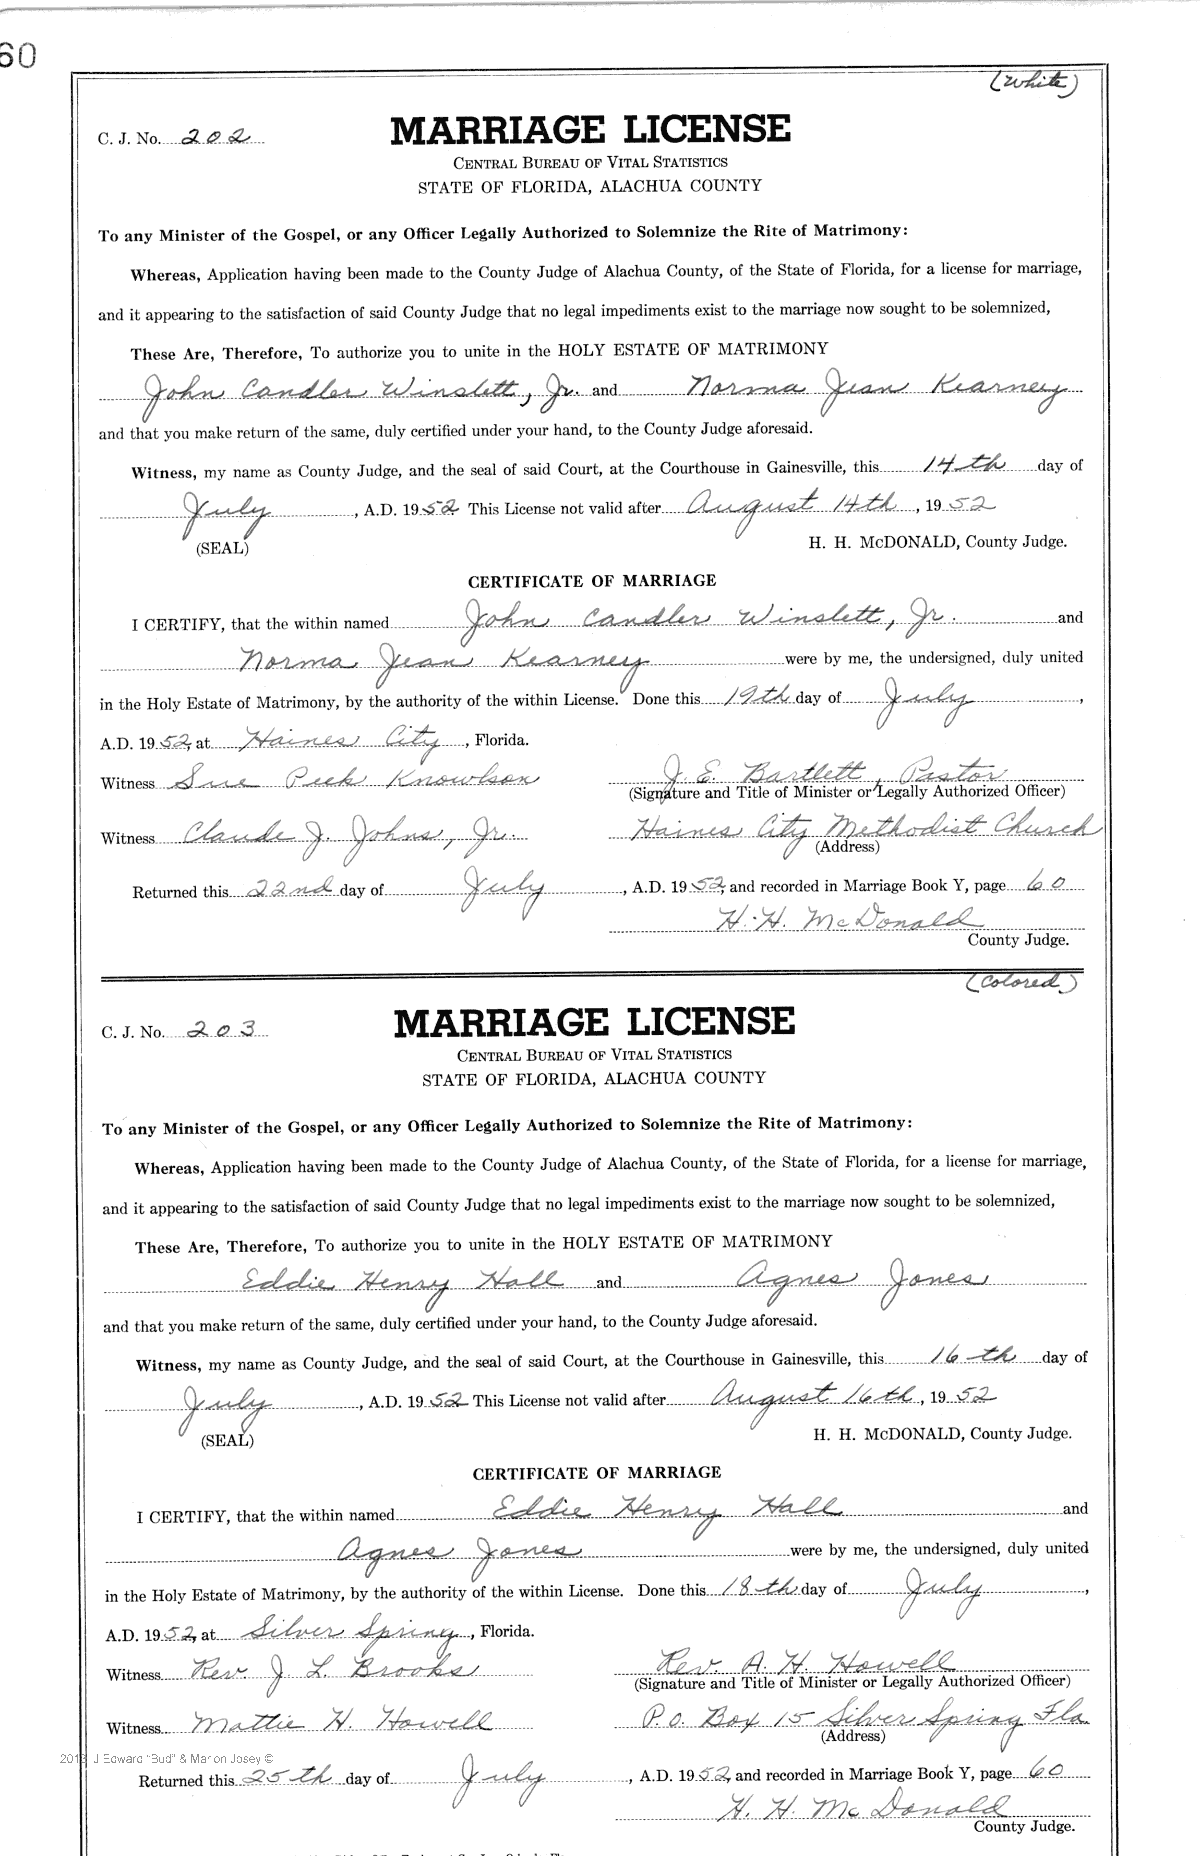 60
(White)
C. J. No. 202
MARRIAGE LICENSE
CENTRAL BUREAU OF VITAL STATISTICS
STATE OF FLORIDA, ALACHUA COUNTY
To any Minister of the Gospel, or any Officer Legally Authorized to Solemnize the Rite of Matrimony:
Whereas, Application having been made to the County Judge of Alachua County, of the State of Florida, for a license for marriage,
and it appearing to the satisfaction of said County Judge that no legal impediments exist to the marriage now sought to be solemnized,
These Are, Therefore, To authorize you to unite in the HOLY ESTATE OF MATRIMONY
John Candler Winslett, Jr. and Norma Jean Kearney
and that you make return of the same, duly certified under your hand, to the County Judge aforesaid.
Witness, my name as County Judge, and the seal of said Court, at the Courthouse in Gainesville, this 14th day of
July, A.D. 1952 This License not valid after August 14th, 1952
(SEAL) H. H. McDONALD, County Judge.
CERTIFICATE OF MARRIAGE
I CERTIFY, that the within named John Candler Winslett, Jr. and
Norma Jean Kearney were by me, the undersigned, duly united
in the Holy Estate of Matrimony, by the authority of the within License. Done this 19th day of July,
A.D. 1952, at Haines City, Florida.
Witness Sue Peek Knowlson J. E. Bartlett, Pastor
(Signature and Title of Minister or Legally Authorized Officer)
Witness Claude J. Johns, Jr. Haines City Methodist Church
(Address)
Returned this 22nd day of July, A.D. 1952, and recorded in Marriage Book Y, page 60
H. H. McDonald
County Judge.
(Colored)
C. J. No. 203
MARRIAGE LICENSE
CENTRAL BUREAU OF VITAL STATISTICS
STATE OF FLORIDA, ALACHUA COUNTY
To any Minister of the Gospel, or any Officer Legally Authorized to Solemnize the Rite of Matrimony:
Whereas, Application having been made to the County Judge of Alachua County, of the State of Florida, for a license for marriage,
and it appearing to the satisfaction of said County Judge that no legal impediments exist to the marriage now sought to be solemnized,
These Are, Therefore, To authorize you to unite in the HOLY ESTATE OF MATRIMONY
Eddie Henry Hall and Agnes Jones
and that you make return of the same, duly certified under your hand, to the County Judge aforesaid.
Witness, my name as County Judge, and the seal of said Court, at the Courthouse in Gainesville, this 16th day of
July, A.D. 1952 This License not valid after August 16th, 1952
(SEAL) H. H. McDONALD, County Judge.
CERTIFICATE OF MARRIAGE
I CERTIFY, that the within named Eddie Henry Hall and
Agnes Jones were by me, the undersigned, duly united
in the Holy Estate of Matrimony, by the authority of the within License. Done this 18th day of July,
A.D. 1952, at Silver Spring, Florida.
Witness Rev. J L. Brooks Rev. A. H. Howell
(Signature and Title of Minister or Legally Authorized Officer)
Witness Mattie H. Howell P.O. Box 15 Silver Spring Fla.
(Address)
J Edward "Bud" & Marion Josey ©
Returned this 25th day of July, A.D. 1952, and recorded in Marriage Book Y, page 60
H. H. McDonald
County Judge.